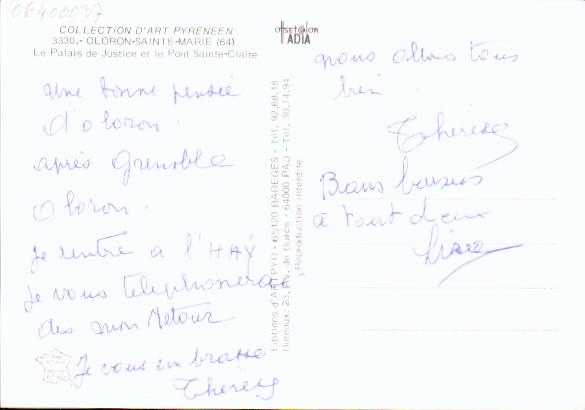 06400037
COLLECTION D'ART PYRENEEN
3330.- OLORON-SAINTE-MARIE (64)
Le Palais de Justice et le Pont Sainte-Claire
offset avion
ADIA
une bonne pensée
d'oloron.
après Grenoble
oloron.
je rentre a l'HAŸ
je vous telephonerai,
des mon retour
Je vous embrasse
Therese
Editions d'ART PYR - 65120 BAREGES - Tél. 92.68.18
Bureaux: 23, Av. de Buros - 64000 PAU - Tél. 30.74.94
Reproduction interdite
nous allons tous
bien
Therese
Bons baisers
à tout deux